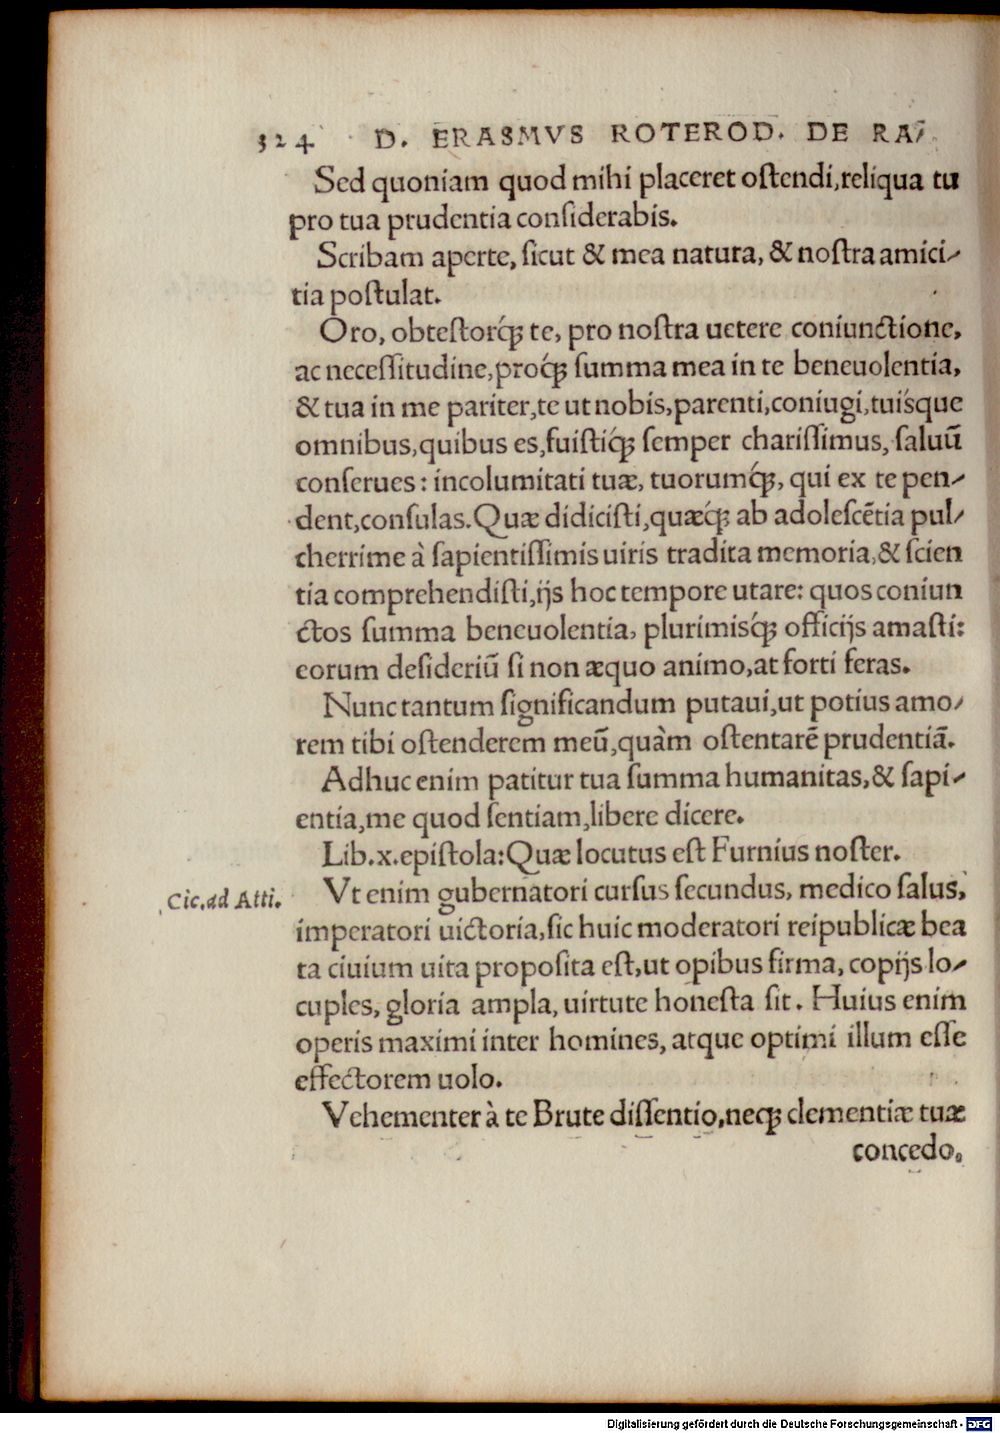 324 D. ERASMVS ROTEROD. DE RA-
Sed quoniam quod mihi placeret oſtendi,reliqua tu
pro tua prudentia conſiderabis.
Scribam aperte, ſicut & mea natura, & noſtra amici-
tia poſtulat.
Oro, obteſtorq́ꝫ te, pro noſtra uetere coniunctione,
ac neceſſitudine,proq́ꝫ ſumma mea in te beneuolentia,
& tua in me pariter,te ut nobis,parenti,coniugi,tuiśque
omnibus,quibus es,fuiſtiq́ꝫ ſemper chariſſimus, ſaluũ
conſerues: incolumitati tuæ, tuorumq́ꝫ, qui ex te pen-
dent,conſulas.Quæ didiciſti,quæq́ꝫ ab adoleſcẽtia pul-
cherrime à ſapientiſſimis uiris tradita memoria,& ſcien
tia comprehendiſti,ijs hoc tempore utare: quos coniun
ctos ſumma beneuolentia, plurimisq́ꝫ officijs amaſti:
eorum deſideriũ ſi non æquo animo,at forti feras.
Nunc tantum ſignificandum putaui,ut potius amo-
rem tibi oſtenderem meũ,quàm oſtentarẽ prudentiã.
Adhuc enim patitur tua ſumma humanitas,& ſapi-
entia,me quod ſentiam,libere dicere.
Lib.x.epiſtola:Quæ locutus eſt Furnius noſter.
Cic.ad Atti. Vt enim gubernatori curſus ſecundus, medico ſalus,
imperatori uictoria,ſic huic moderatori reipublicæ bea
ta ciuium uita propoſita eſt,ut opibus firma, copijs lo-
cuples, gloria ampla, uirtute honeſta ſit. Huius enim
operis maximi inter homines, atque optimi illum eſſe
effectorem uolo.
Vehementer à te Brute diſſentio,neqꝫ clementiæ tuæ
concedo.
Digitalisierung gefördert durch die Deutsche Forschungsgemeinschaft - DFG